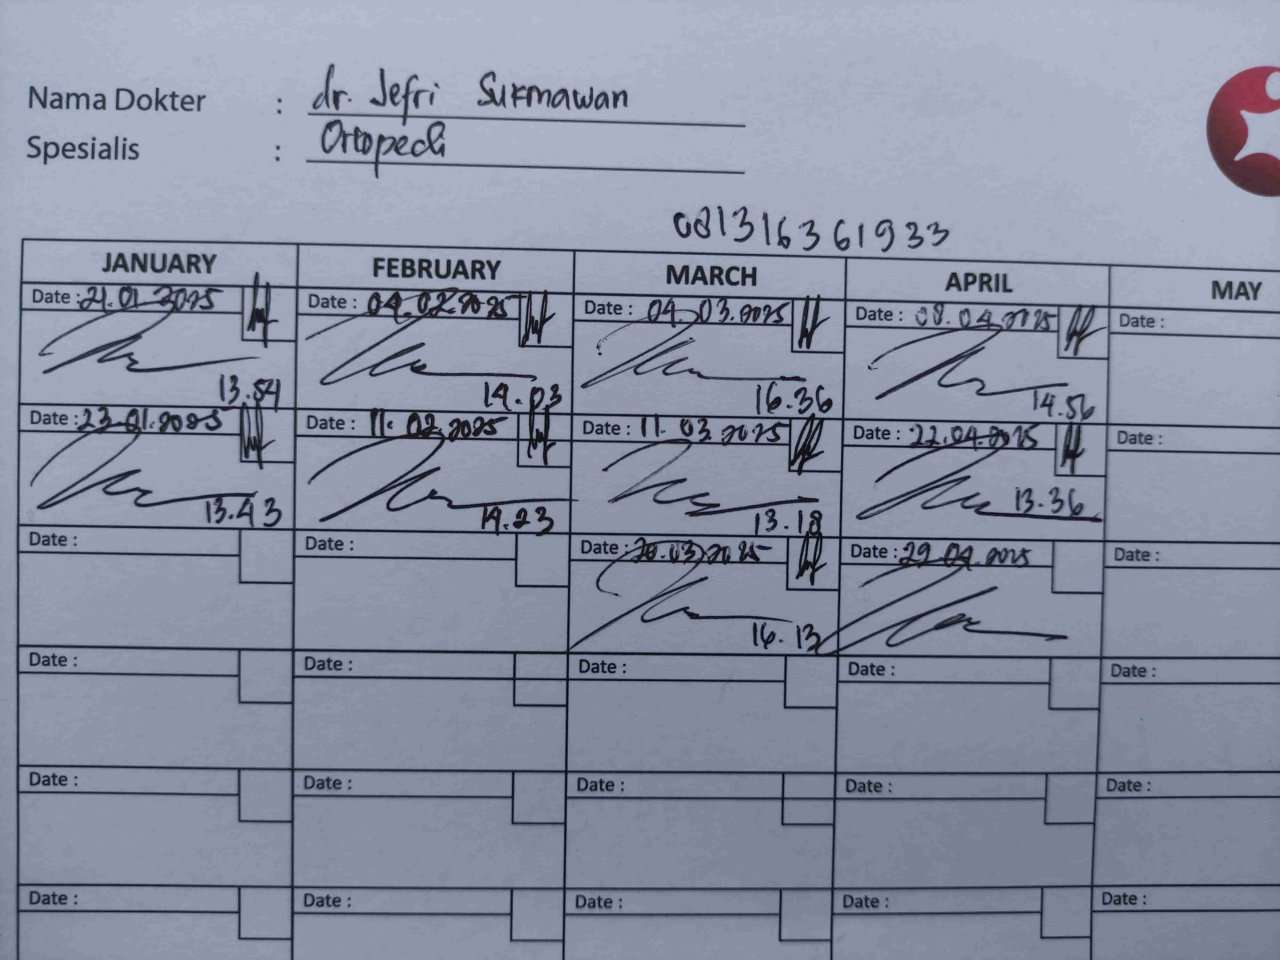 Nama Dokter : dr. Jefri Sukmawan
Spesialis : Ortopedi
081316361933
JANUARY FEBRUARY MARCH APRIL MAY
Date : 21.01.2025 Date : 04.02.2025 Date : 04.03.2025 Date : 08.04.2025 Date :
13.54 14.03 16.36 14.56
Date : 23.01.2025 Date : 11.02.2025 Date : 11.03.2025 Date : 22.04.2025 Date :
13.43 14.23 13.18 13.36
Date : Date : Date : 20.03.2025 Date : 29.04.2025 Date :
16.13
Date : Date : Date : Date : Date :
Date : Date : Date : Date : Date :
Date : Date : Date : Date : Date :